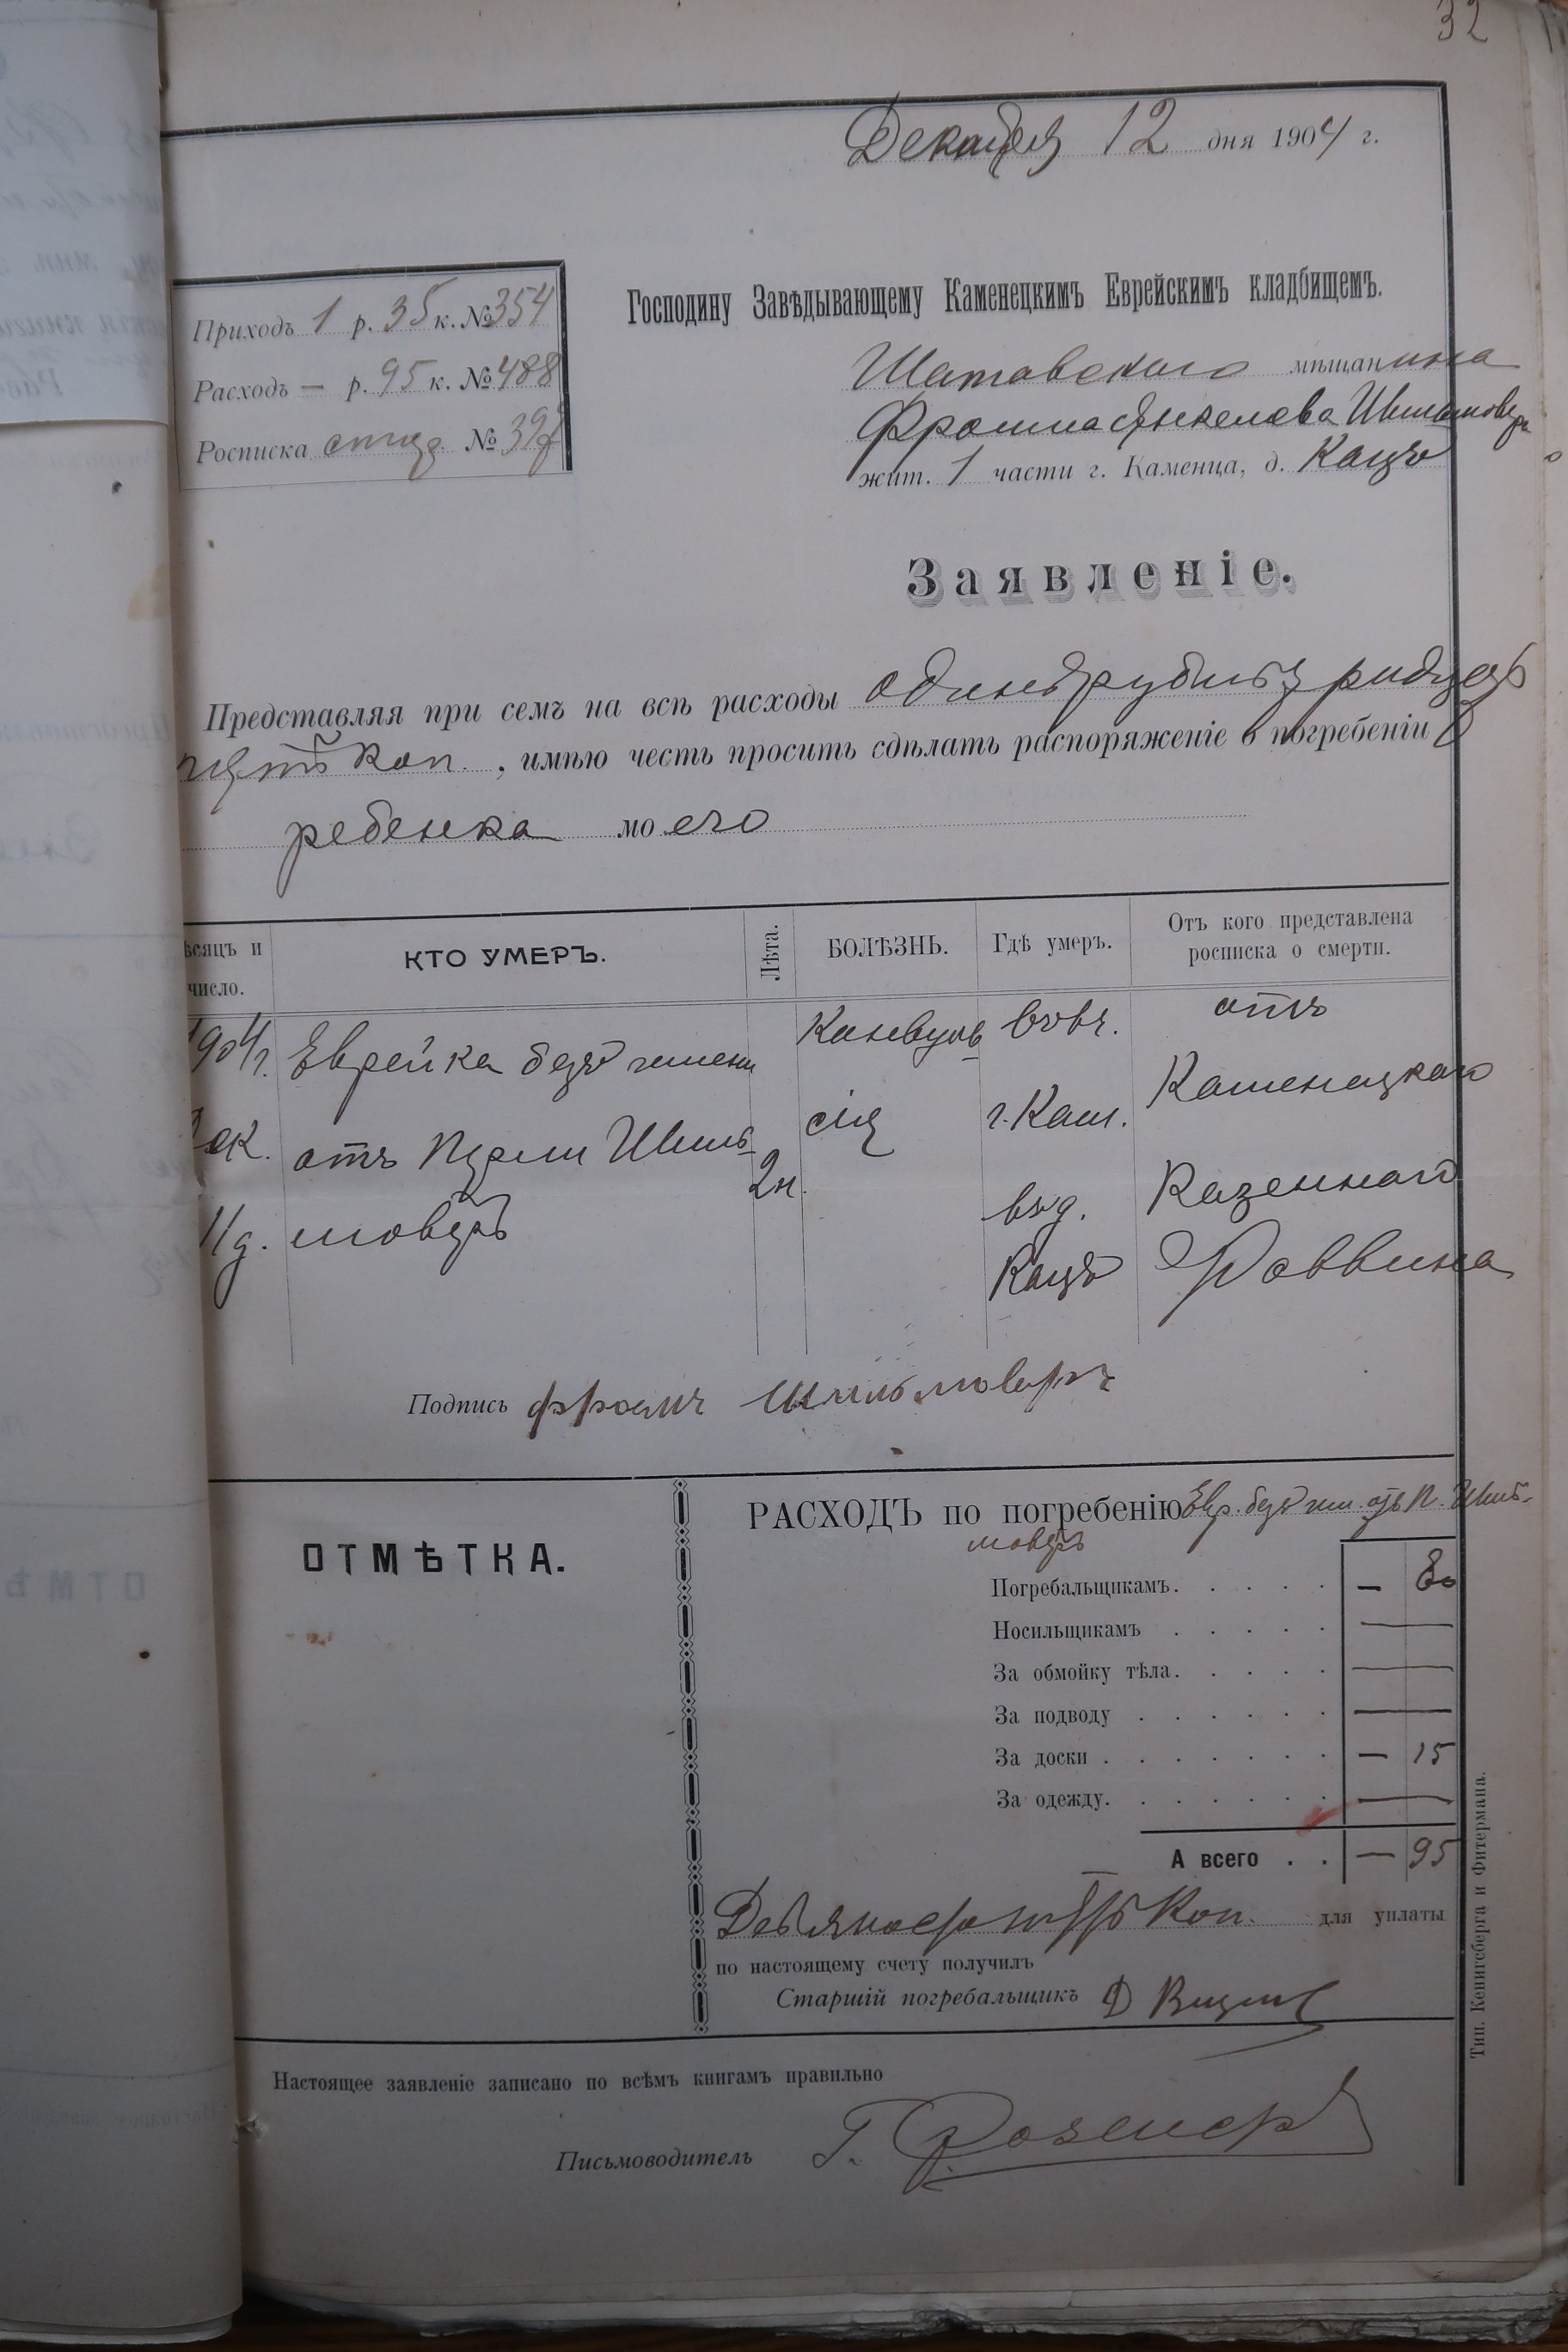 32
Декабря 12 дня 1904 г.
Приходъ 1 р. 35 к. № 354
Расходъ — р. 95 к. № 488
Росписка № 397
Господину Завѣдывающему Каменецкимъ Еврейскимъ кладбищемъ.
Шатовского мѣщанина
Фроима Янкелева Шильмовера
жит. 1 части г. Каменца, д. Кацъ
Заявленіе.
Представляя при семъ на всѣ расходы одинъ рубль тридцать
пять коп. , имѣю честь просить сдѣлать распоряженіе о погребеніи
ребенка моего
ѣсяцъ и число.
КТО УМЕРЪ.
Лѣта.
БОЛѢЗНЬ.
Гдѣ умеръ.
Отъ кого представлена росписка о смерти.
1904 г. Еврейка безъ имени Конвуль въ г. отъ
Дек. отъ Перли Шиль- 2 н. сія г. Кам. Каменецкаго
11 д. моверъ въ д. Казеннаго
Кацъ Раввина
Подпись Фроимъ Шильмоверъ
ОТМѢТКА.
РАСХОДЪ по погребенію Евр. безъ им. отъ П. Шиль-
моверъ
Погребальщикамъ. . . . . — 80
Носильщикамъ . . . . . —
За обмойку тѣла. . . . . —
За подводу . . . . . . —
За доски . . . . . . . — 15
За одежду. . . . . . . —
А всего . . — 95
Девяносто пять коп. для уплаты
по настоящему счету получилъ
Старшій погребальщикъ Д
Настоящее заявленіе записано по всѣмъ книгамъ правильно
Письмоводитель Г. Розенеръ
Тип. Кенигсберга и Фитермана.
ОТМѢ